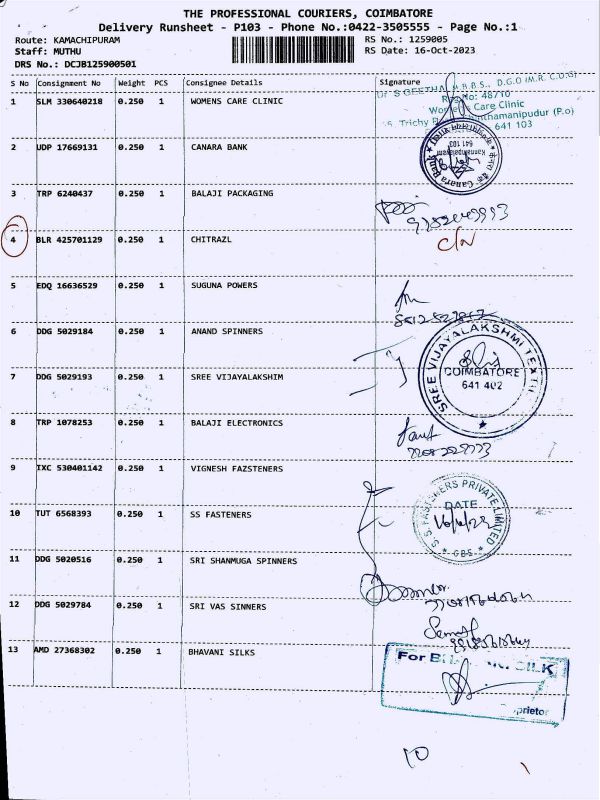 THE PROFESSIONAL COURIERS, COIMBATORE
Delivery Runsheet - P103 - Phone No.:0422-3505555 - Page No.:1
Route: KAMACHIPURAM RS No.: 1259005
Staff: MUTHU RS Date: 16-Oct-2023
DRS No.: DCJB125900501
S No Consignment No Weight PCS Consignee Details Signature
1 SLM 330640218 0.250 1 WOMENS CARE CLINIC
Dr S GEETHA M.B.B.S., D.G.O (M.R.C.O.G)
Reg No: 48710
Women's Care Clinic
Trichy
641 103
2 UDP 17669131 0.250 1 CANARA BANK
Canara Bank
641 103
3 TRP 6240437 0.250 1 BALAJI PACKAGING
4 BLR 425701129 0.250 1 CHITRAZL
C/N
5 EDQ 16636529 0.250 1 SUGUNA POWERS
6 DDG 5029184 0.250 1 ANAND SPINNERS
7 DDG 5029193 0.250 1 SREE VIJAYALAKSHIM
SREE VIJAYALAKSHMI TEXTIL
COIMBATORE
641 402
8 TRP 1078253 1 BALAJI ELECTRONICS
0.250
9 IXC 530401142 0.250 1 VIGNESH FAZSTENERS
10 TUT 6568393 0.250 1 SS FASTENERS
S. S. FASTENERS PRIVATE LIMITED
DATE
CBE
11 DDG 5020516 0.250 1 SRI SHANMUGA SPINNERS
12 DDG 5029784 0.250 1 SRI VAS SINNERS
13 AMD 27368302 0.250 1 BHAVANI SILKS
For SILK
prietor
10